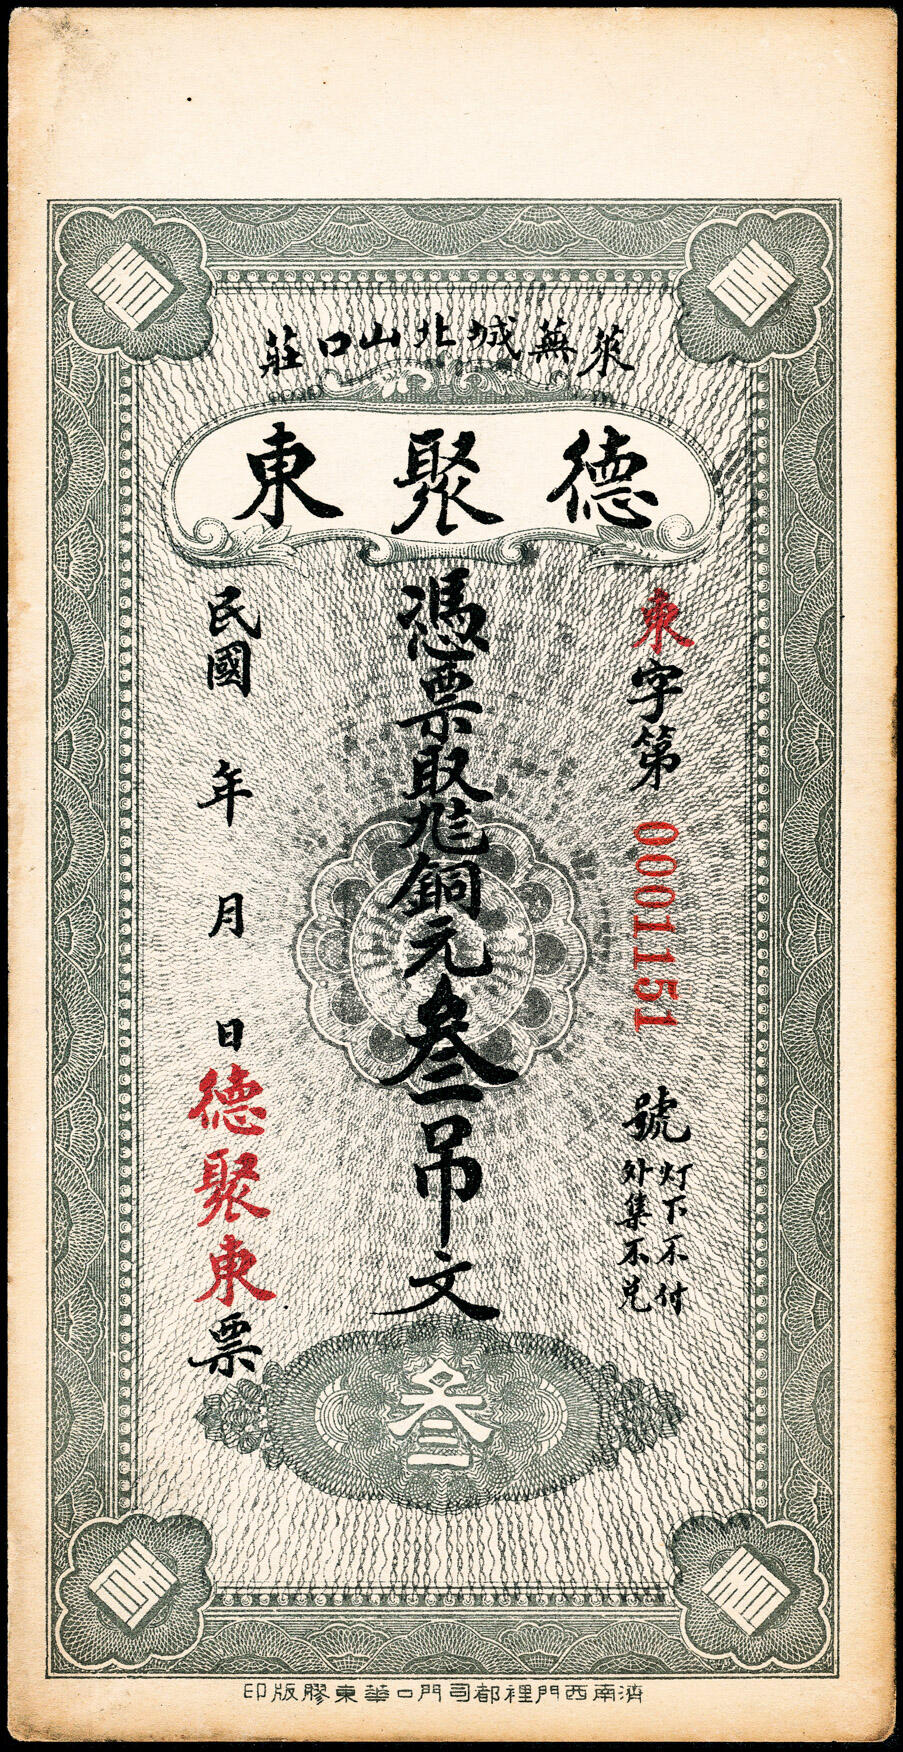 萊蕪城北山口莊
德聚東
東字第 0001151 號
灯下不付
外集不兌
憑票取
銅元叁吊文
民國 年 月 日德聚東票
叁
濟南西門裡都司門口華東膠版印